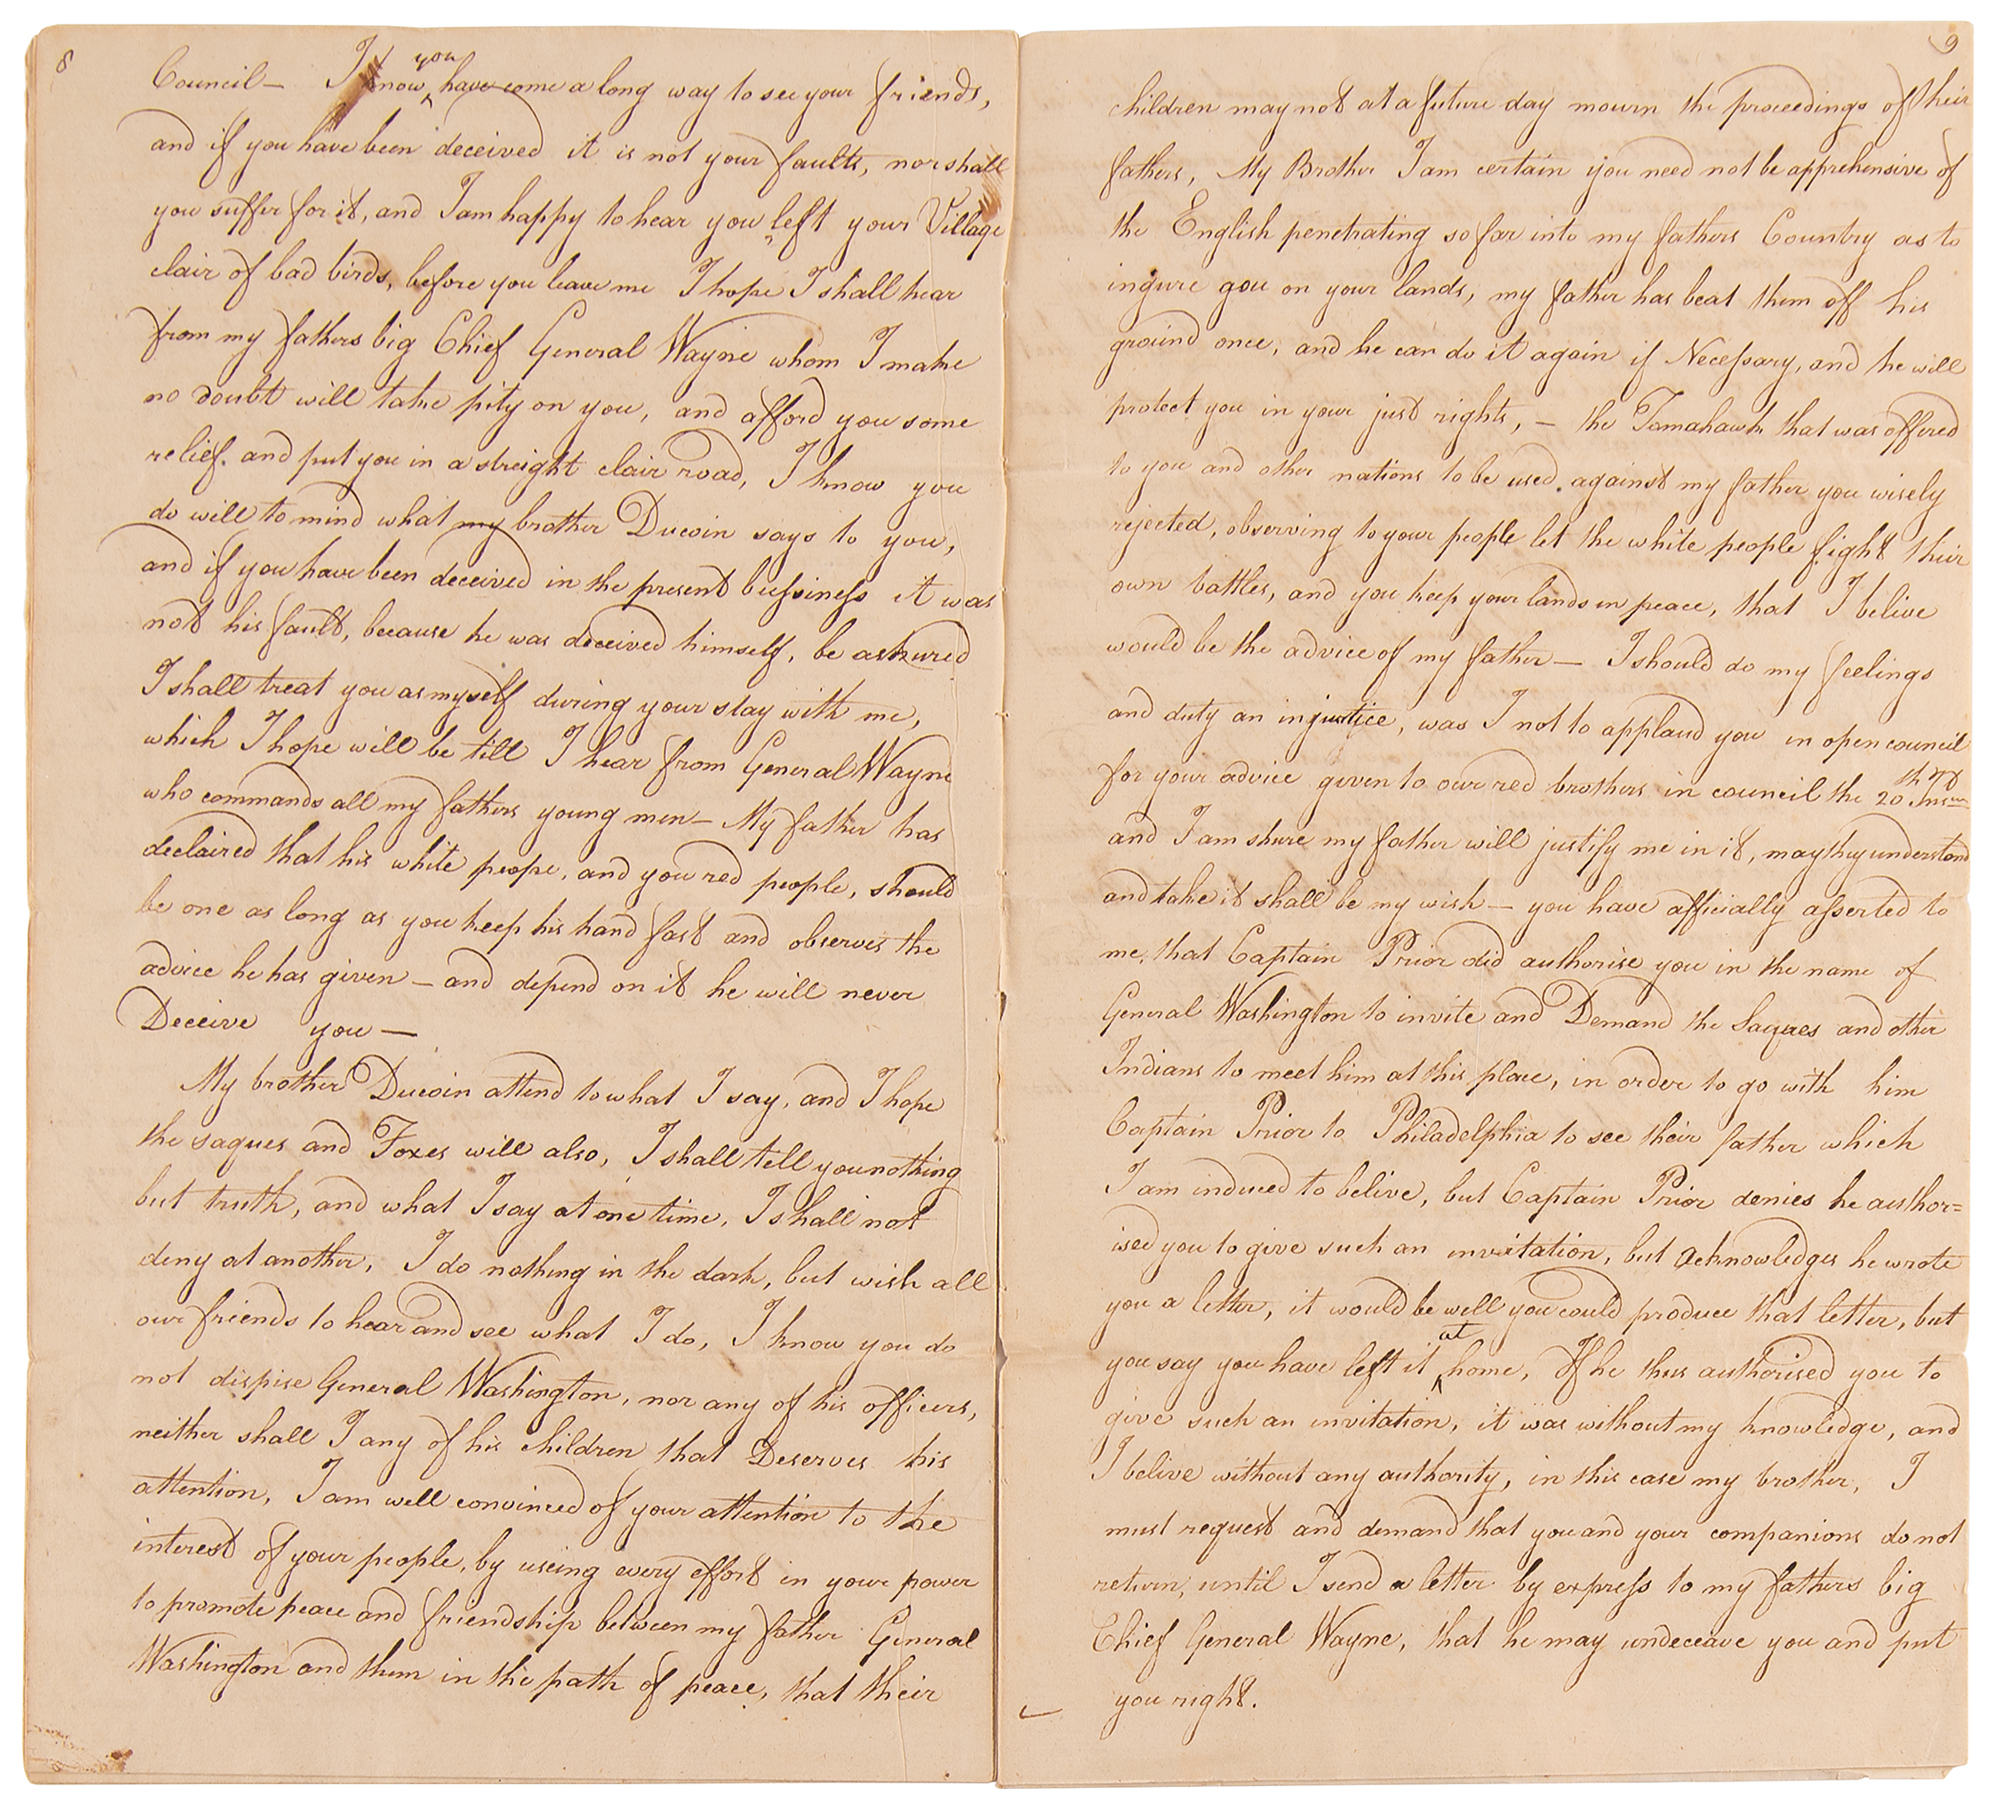 8
Council — I know you have come a long way to see your friends,
and if you have been deceived it is not your faults, nor shall
you suffer for it, and I am happy to hear you left your Village
clair of bad birds, before you leave me I hope I shall hear
from my fathers big Chief General Wayne whom I make
no doubt will take pity on you, and afford you some
relief. and put you in a streight clair road, I know you
do will to mind what my brother Ducoin says to you,
and if you have been deceived in the present bussiness it was
not his fault, because he was deceived himself, be ashured
I shall treat you as myself during your stay with me,
which I hope will be till I hear from General Wayne
who commands all my fathers young men — My father has
declaired that his white peope, and you red people, should
be one as long as you keep his hand fast and observes the
advice he has given — and depend on it he will never
Deceive you —
My brother Ducoin attend to what I say, and I hope
the saques and Foxes will also, I shall tell you nothing
but truth, and what I say at one time, I shall not
deny at another, I do nothing in the dark, but wish all
our friends to hear and see what I do, I know you do
not dispise General Washington, nor any of his officers,
neither shall I any of his children that Deserves his
attention, I am well convinced of your attention to the
interest of your people, by useing every effort in your power
to promote peace and friendship between my father General
Washington and them in the path of peace, that their
9
children may not at a future day mourn the proceedings of their
fathers, My Brother I am certain you need not be apprehensive of
the English penetrating so far into my fathers Country as to
ingure you on your lands, my father has beat them off his
ground once, and he can do it again if Necessary, and he will
protect you in your just rights, — the Tomahawk that was offered
to you and other nations to be used against my father you wisely
rejected, observing to your people let the white people fight their
own battles, and you keep your lands in peace, that I belive
would be the advice of my father — I should do my feelings
and duty an injustice, was I not to applaud you in open council
for your advice given to our red brothers in council the 20th
and I am shure my father will justify me in it, may they understand
and take it shall be my wish — you have officially asserted to
me, that Captain Prior did authorise you in the name of
General Washington to invite and Demand the Saques and other
Indians to meet him at this place, in order to go with him
Captain Prior to Philadelphia to see their father which
I am induced to belive, but Captain Prior denies he author=
ised you to give such an invitation, but acknowledges he wrote
you a letter, it would be well you could produce that letter, but
you say you have left it at home, If he thus authorised you to
give such an invitation, it was without my knowledge, and
I belive without any authority, in this case my brother, I
must request and demand that you and your companions do not
return, until I send a letter by express to my fathers big
Chief General Wayne, that he may undeceave you and put
you right.